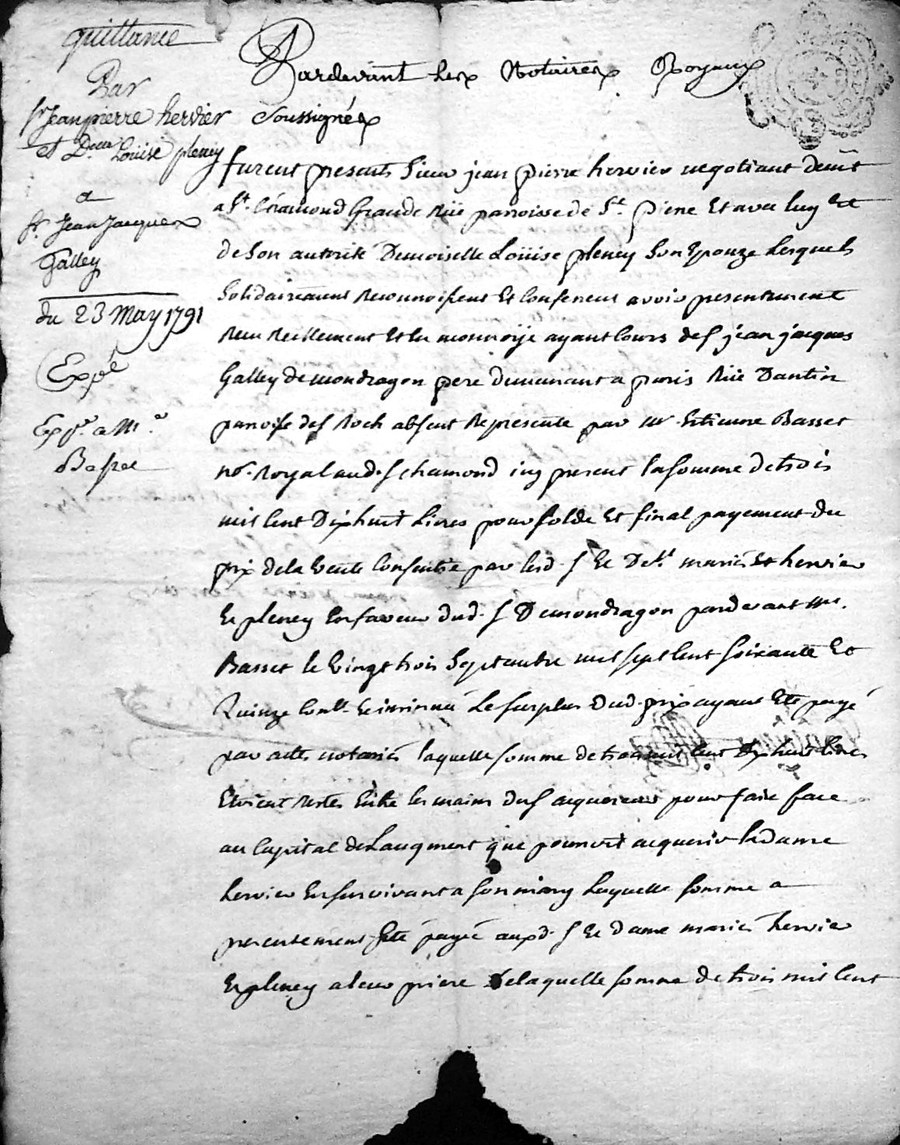 quittance
Par
sr Jean pierre hervier
et Delle Louise pleney
a
sr Jean Jacques
Galley
du 23 May 1791
Expé
Exp.e a Mr
Basset
Pardevant Les Notaires Royaux
Soussignés
furent presents Sieur jean pierre hervier negotiant demt
a St. Chamond Grande Rüe paroisse de St. pierre Et avec luy Et
de Son autorité Demoiselle Loüise pleney Son Epouze Lesquels
Solidairement Reconnoissent Et Confessent avoir presentement
Reçu Reellement Et En monnoÿe ayant Cours de s. jean jacques
Galley de mondragon pere demeurant a paris Rüe Dantin
paroisse de s Roch absent Represente par mr Estienne Basset
nore. Royal aud. s chamond icy present la somme de trois
mil Cent Dixhuit Livres pour solde Et final payement du
prix de la Vente Consentie par lesd. s Et De. mariés hervier
Et pleney En faveur dud. s Demondragon pardevant me.
Basset le Vingt trois Septembre mil sept Cent soixante Et
Quinze Conll. Et insinué Le surplus dud. prix ayant Eté payé
par actes notariés laquelle somme de trois mil Cent Dixhuit livres
Etoient Restés Entre les mains du s acquereur pour faire face
au Capital de Laugment que pourroit acquerir la dame
hervier En survivant a son mary Laquelle somme a
presentement Eté payée auxd. s Et dame mariés hervier
Et pleney a leur priere De laquelle somme de trois mil Cent